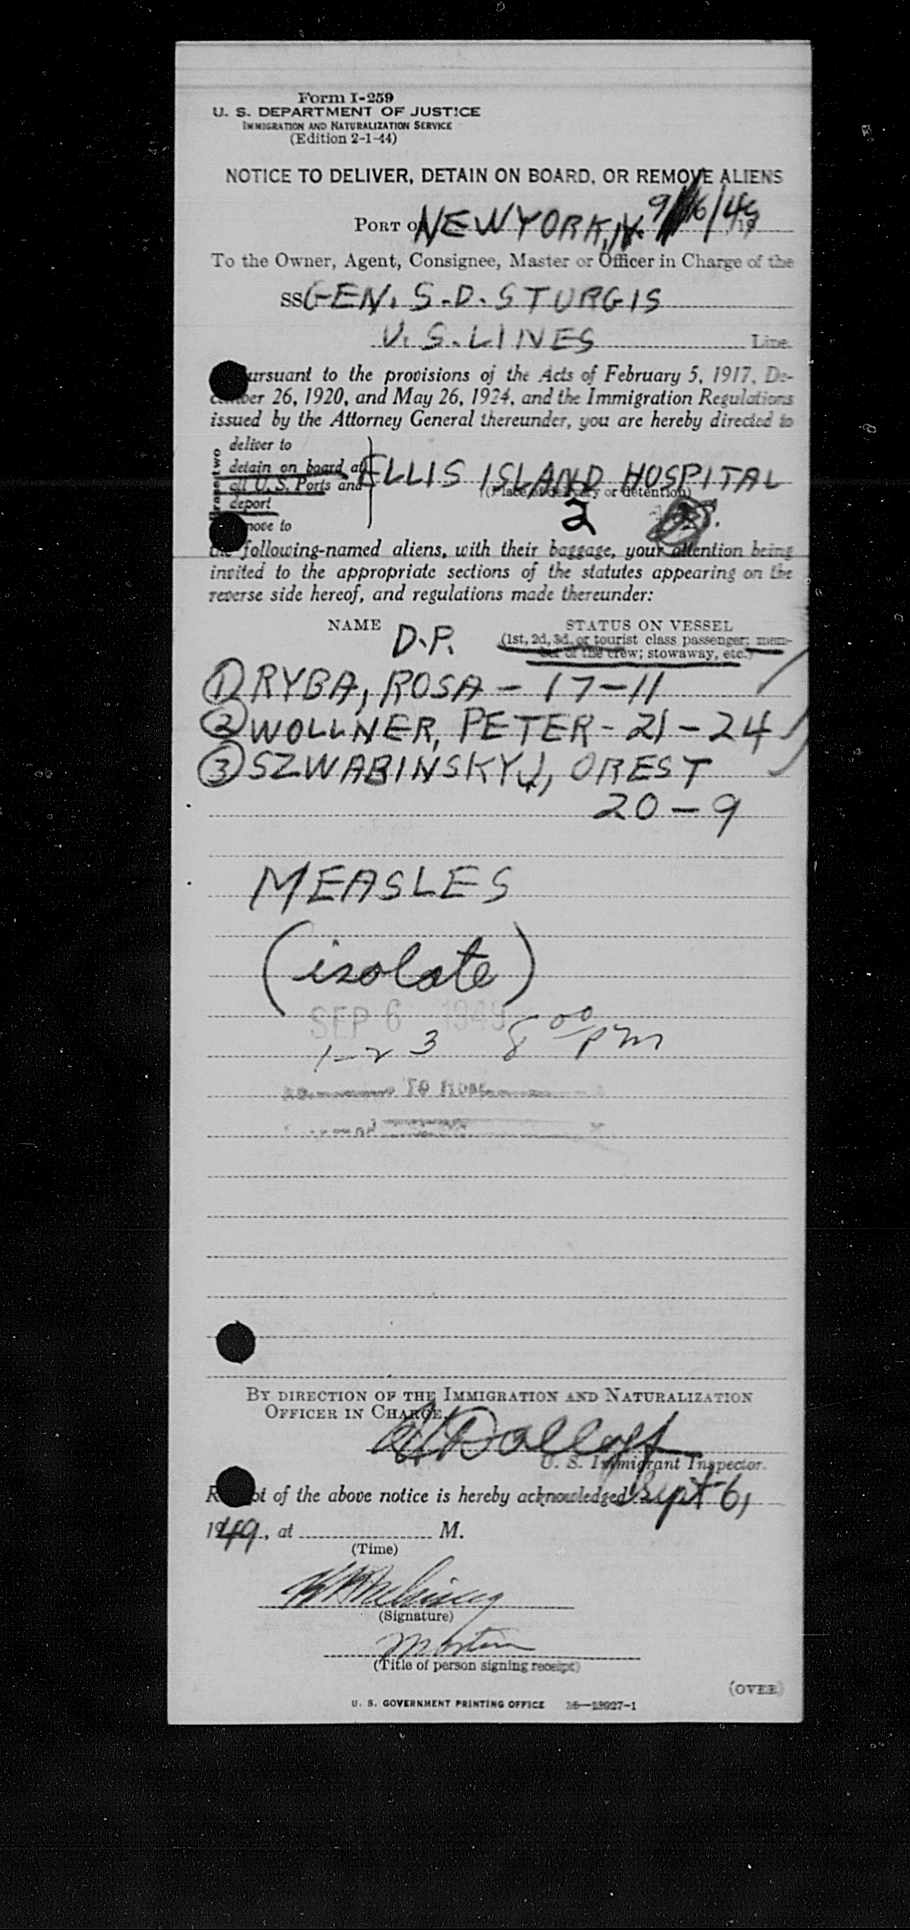 Form I-259
U. S. DEPARTMENT OF JUSTICE
IMMIGRATION AND NATURALIZATION SERVICE
(Edition 2-1-44)
NOTICE TO DELIVER, DETAIN ON BOARD, OR REMOVE ALIENS
PORT OF NEW YORK, N.Y. 9/6/49
To the Owner, Agent, Consignee, Master or Officer in Charge of the
SS GEN. S.D. STURGIS
U.S. LINES Line.
ursuant to the provisions of the Acts of February 5, 1917, De-
cember 26, 1920, and May 26, 1924, and the Immigration Regulations
issued by the Attorney General thereunder, you are hereby directed to
deliver to
detain on board at ELLIS ISLAND HOSPITAL
all U. S. Ports and (Place of delivery or detention)
deport 2
move to
the following-named aliens, with their baggage, your attention being
invited to the appropriate sections of the statutes appearing on the
reverse side hereof, and regulations made thereunder:
NAME D.P. STATUS ON VESSEL
(1st, 2d, 3d, or tourist class passenger; mem-
ber of the crew; stowaway, etc.)
① RYBA, ROSA - 17-11
② WOLLNER, PETER - 21-24
③ SZWABINSKYJ, OREST
20-9
MEASLES
(isolate)
SEP 6 1949
1-2 3 8 00 pm
TO
BY DIRECTION OF THE IMMIGRATION AND NATURALIZATION
OFFICER IN CHARGE.
U. S. Immigrant Inspector.
Receipt of the above notice is hereby acknowledged Sept 6,
1949, at M.
(Time)
(Signature)
(Title of person signing receipt)
(OVER)
U. S. GOVERNMENT PRINTING OFFICE 16—13927-1